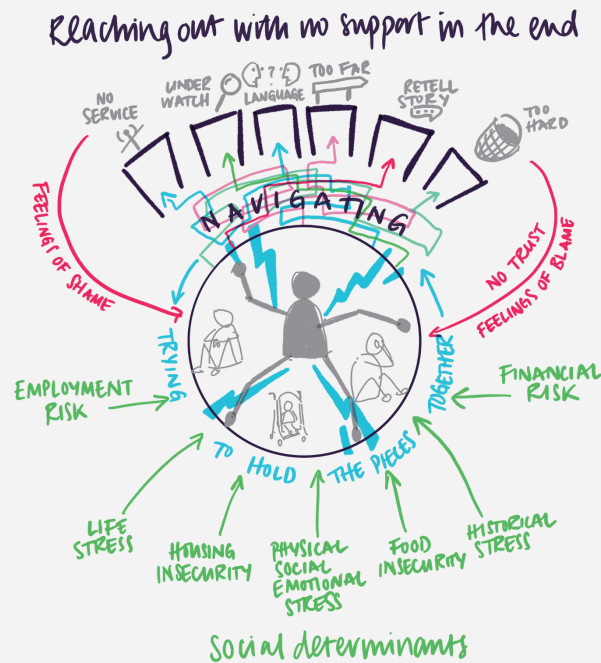 Reaching out with no support in the end
NO
SERVICE
UNDER
WATCH
?
LANGUAGE
TOO FAR
RETELL
STORY
TOO
HARD
NAVIGATING
FEELINGS OF SHAME
NO TRUST
FEELINGS OF BLAME
TRYING
TO HOLD
THE PIECES
TOGETHER
EMPLOYMENT
RISK
FINANCIAL
RISK
LIFE
STRESS
HOUSING
INSECURITY
PHYSICAL
SOCIAL
EMOTIONAL
STRESS
FOOD
INSECURITY
HISTORICAL
STRESS
Social determinants